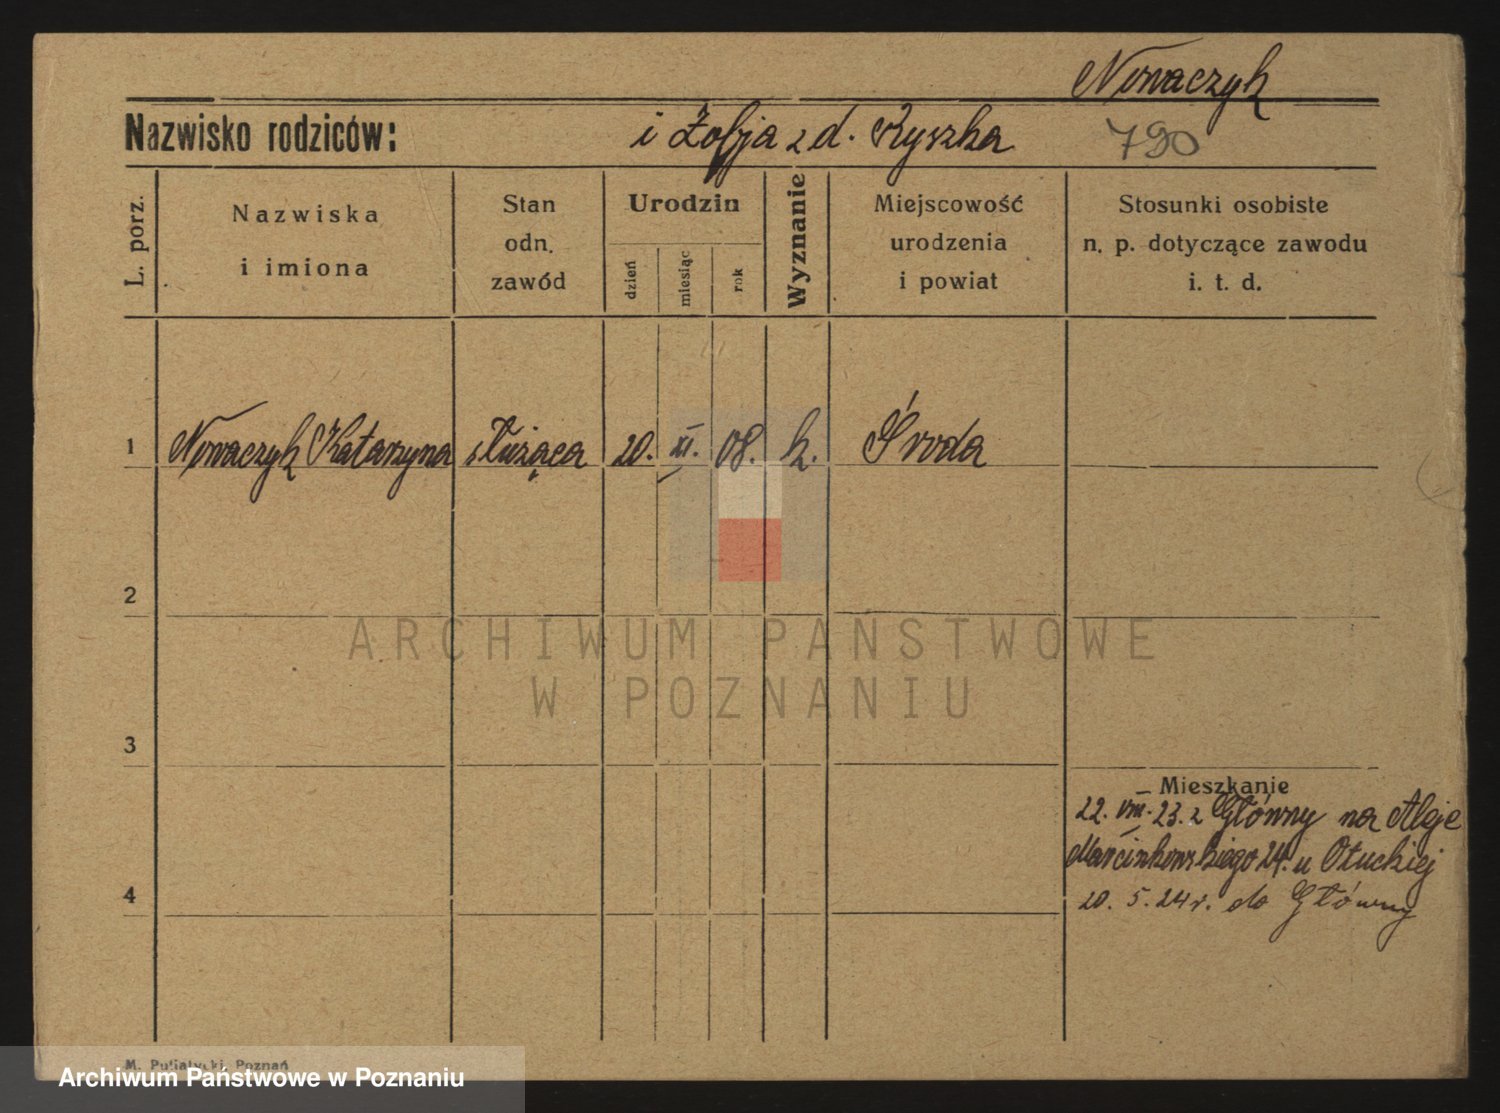 Nowaczyk
Nazwisko rodziców: i Zofja z d. Ryszka 790
L. porz.
Nazwiska
i imiona
Stan
odn.
zawód
Urodzin
dzień
miesiąc
rok
Wyznanie
Miejscowość
urodzenia
i powiat
Stosunki osobiste
n. p. dotyczące zawodu
i. t. d.
1 Nowaczyk Katarzyna służąca 20. XI. 08. k. Środa
2
ARCHIWUM PAŃSTWOWE
W POZNANIU
3
Mieszkanie
22. VIII. 23. z Główny na Aleje
Marcinkowskiego 24. u Otuckiej
4
20. 5. 24 r. do Główny
M. Putiatycki, Poznań
Archiwum Państwowe w Poznaniu